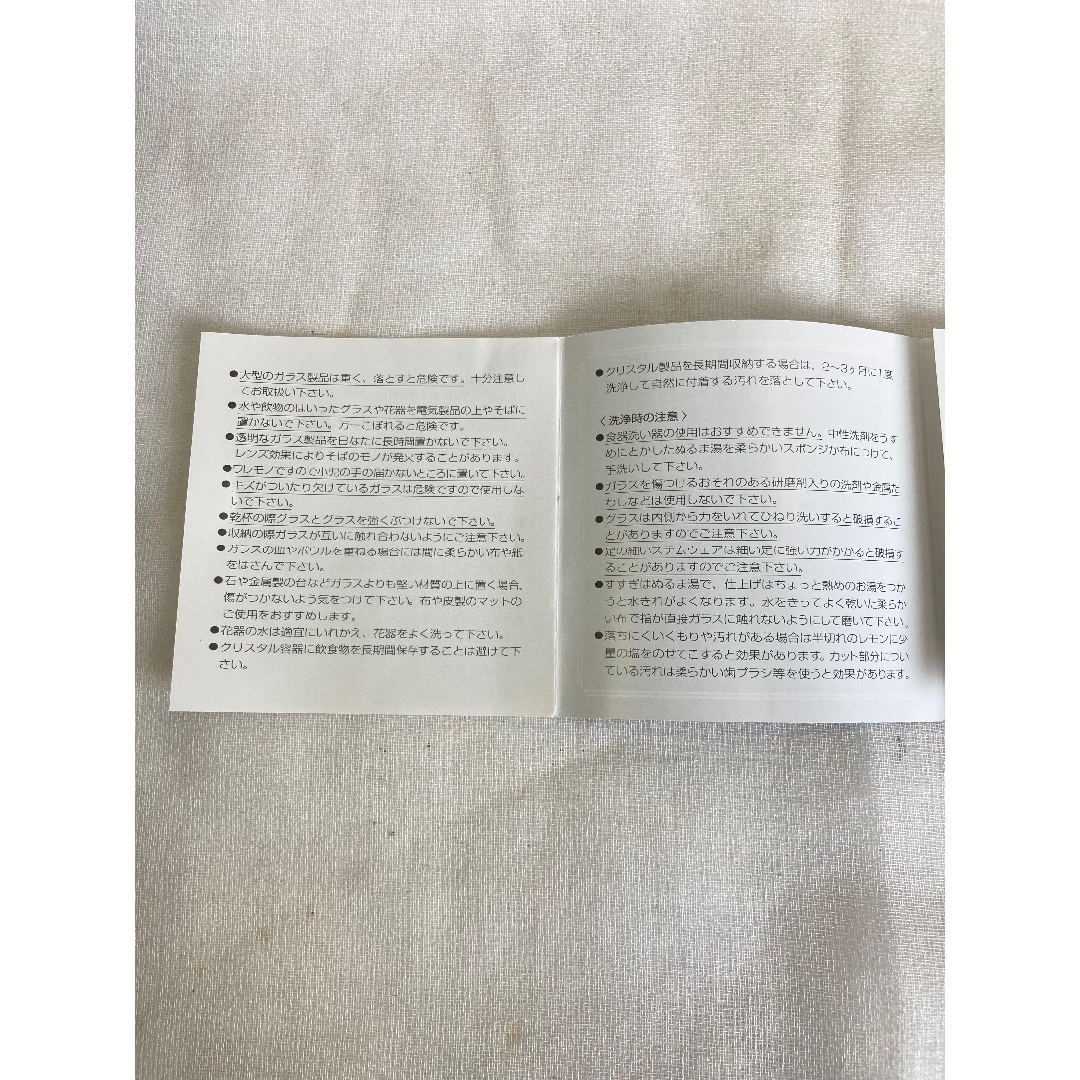 ●大型のガラス製品は重く、落とすと危険です。十分注意し
てお取扱い下さい。
●水や飲物のはいったグラスや花器を電気製品の上やそばに
置かないで下さい。万一こぼれると危険です。
●透明なガラス製品を日なたに長時間置かないで下さい。
レンズ効果によりそばのモノが発火することがあります。
●ワレモノですので小児の手の届かないところに置いて下さい。
●キズがついたり欠けているガラスは危険ですので使用しな
いで下さい。
●乾杯の際グラスとグラスを強くぶつけないで下さい。
●収納の際ガラスが互いに触れ合わないようにご注意下さい。
●ガラスの皿やボウルを重ねる場合には間に柔らかい布や紙
をはさんで下さい。
●石や金属製の台などガラスよりも堅い材質の上に置く場合、
傷がつかないよう気をつけて下さい。布や皮製のマットの
ご使用をおすすめします。
●花器の水は適宜にいれかえ、花器をよく洗って下さい。
●クリスタル容器に飲食物を長期間保存することは避けて下
さい。
●クリスタル製品を長期間収納する場合は、2〜3ヶ月に1度
洗浄して自然に付着する汚れを落として下さい。
〈洗浄時の注意〉
●食器洗い器の使用はおすすめできません。中性洗剤をうす
めにとかしたぬるま湯を柔らかいスポンジか布につけて、
手洗いして下さい。
●ガラスを傷つけるおそれのある研磨剤入りの洗剤や金属た
わしなどは使用しないで下さい。
●グラスは内側から力をいれてひねり洗いすると破損するこ
とがありますのでご注意下さい。
●足の細いステムウェアは細い足に強い力がかかると破損す
ることがありますのでご注意下さい。
●すすぎはぬるま湯で、仕上げはちょっと熱めのお湯をつか
うと水きれがよくなります。水をきってよく乾いた柔らか
い布で指が直接ガラスに触れないようにして磨いて下さい。
●落ちにくいくもりや汚れがある場合は半切れのレモンに少
量の塩をのせてこすると効果があります。カット部分につい
ている汚れは柔らかい歯ブラシ等を使うと効果があります。